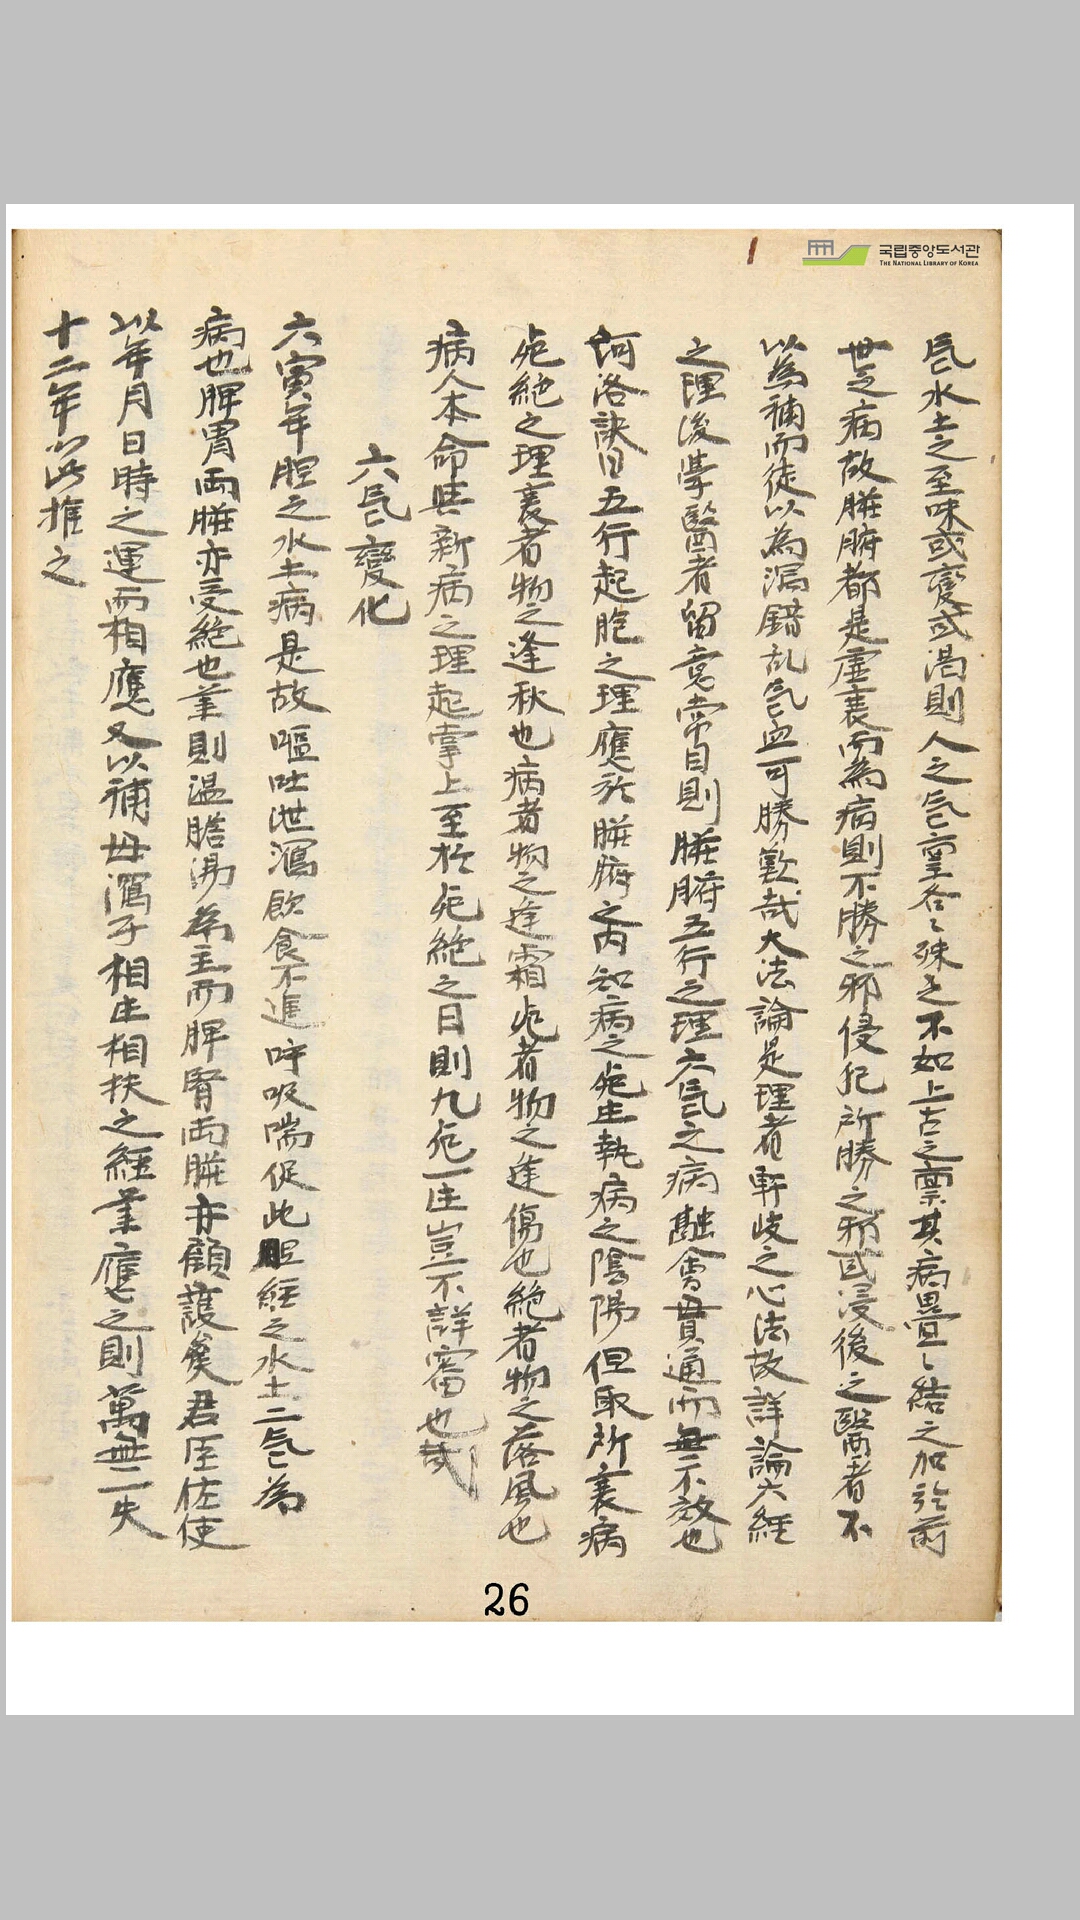 국립중앙도서관
THE NATIONAL LIBRARY OF KOREA
气水土之至味或變或渴則人之气稟各〻殊之不如上古之稟其病疊〻結之加於前
世之病故臟腑都是虛衰而為病則不勝之邪侵犯所勝之邪或浸後之醫者不
以為補而徒以為瀉錯乱气血可勝歎哉大法論是理者軒岐之心法故詳論六經
之理後學醫者留意常目則臟腑五行之理六气之病融會貫通而無不效也
河洛訣曰五行起胞之理應於臟腑之內知病之死生執病之陰陽但取所衰病
死絶之理衰者物之逢秋也病者物之逢霜死者物之逢傷也絶者物之落風也
病人本命與新病之理起掌上至於死絶之日則九死一生豈不詳審也哉
六气變化
六寅年胆之水土病是故嘔吐泄瀉飮食不進呼吸喘促此胆經之水土二气為
病也脾胃両臟亦受絶也薬則温膽湯為主而脾腎両臟亦顧護矣君臣佐使
以年月日時之運而相應又以補母瀉子相生相扶之經薬應之則萬無一失
十二年以此推之
26